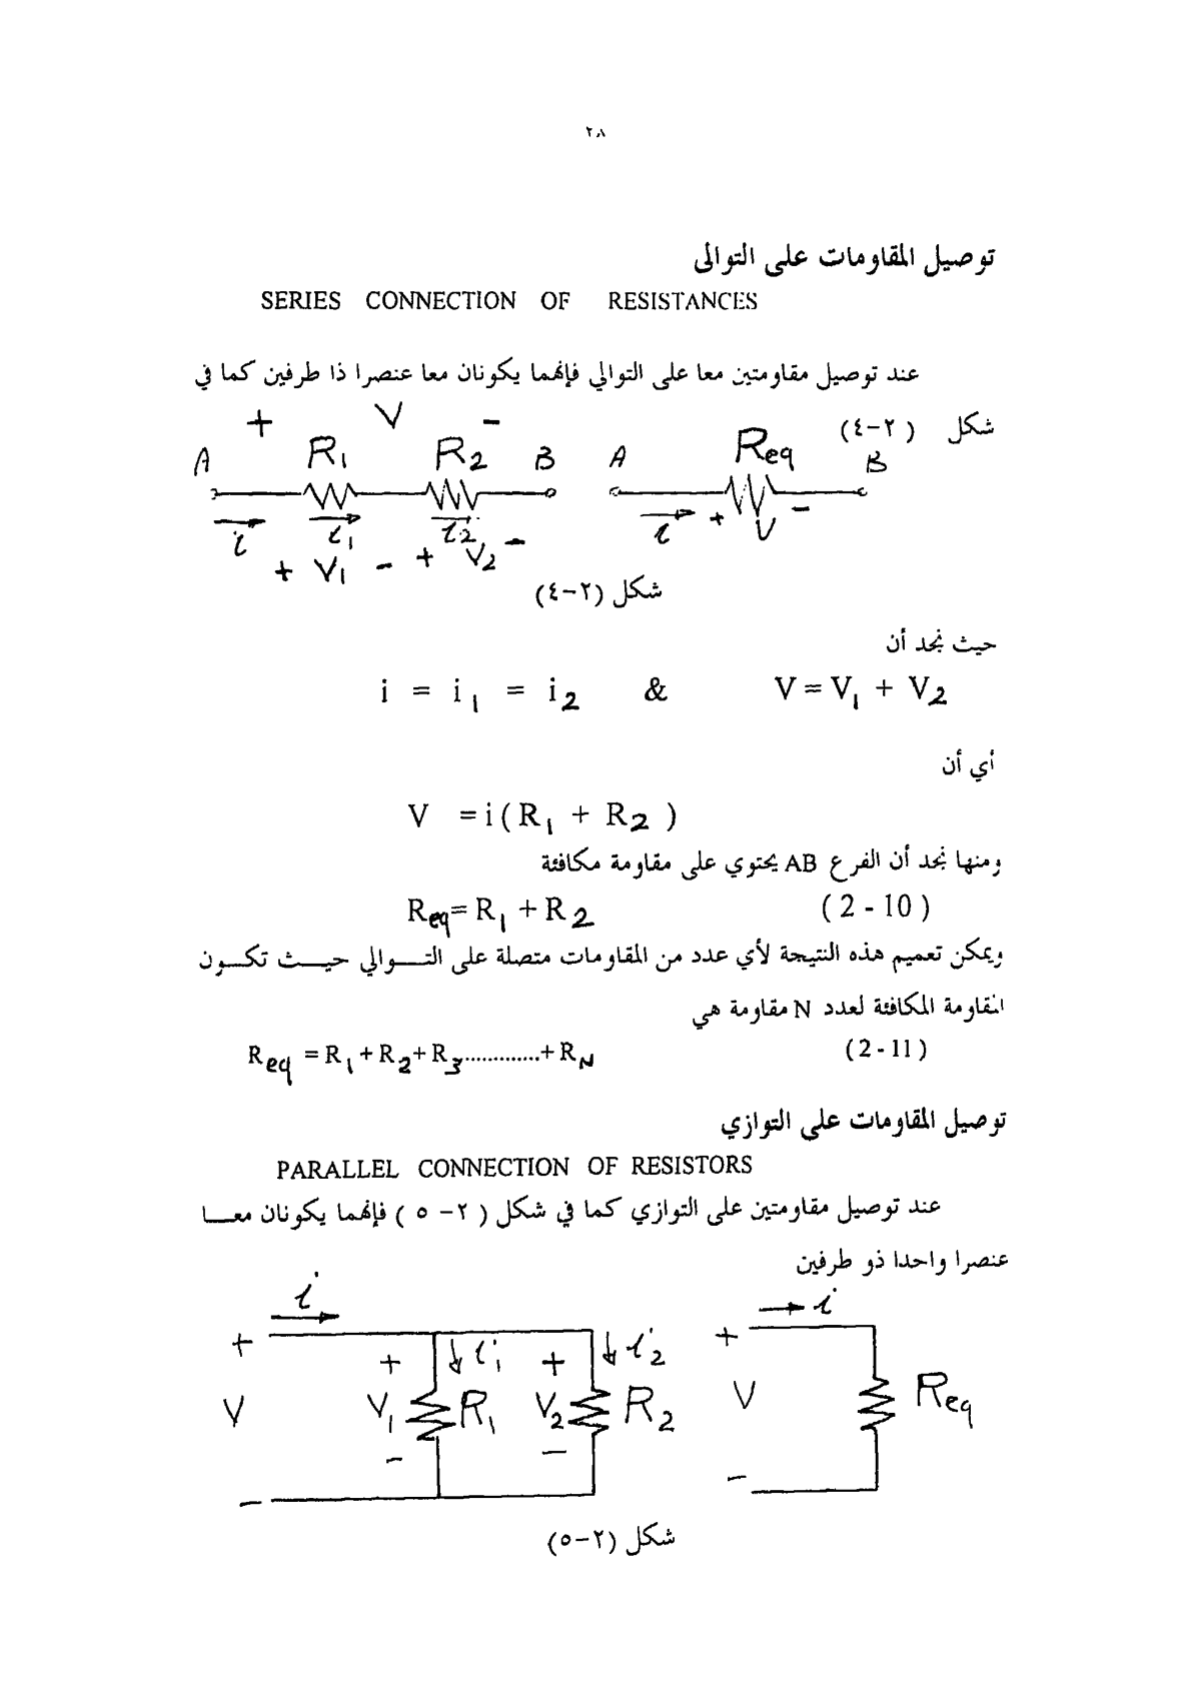 ٢٨
توصيل المقاومات على التوالى
SERIES CONNECTION OF RESISTANCES
عند توصيل مقاومتين معا على التوالي فإنهما يكونان معا عنصرا ذا طرفين كما في
شكل (٢-٤)
+ V -
A R1 R2 B A Req B
i i1 i2 i + V -
+ V1 - + V2 -
شكل (٢-٤)
حيث نجد أن
i = i1 = i2 & V = V1 + V2
أي أن
V = i ( R1 + R2 )
ومنها نجد أن الفرع AB يحتوي على مقاومة مكافئة
Req = R1 + R2 ( 2 - 10 )
ويمكن تعميم هذه النتيجة لأي عدد من المقاومات متصلة على التـــوالي حيـــث تكـــون
المقاومة المكافئة لعدد N مقاومة هي
Req = R1 + R2 + R3.............+ RN (2 - 11 )
توصيل المقاومات على التوازي
PARALLEL CONNECTION OF RESISTORS
عند توصيل مقاومتين على التوازي كما في شكل ( ٢- ٥ ) فإنهما يكونان معـــا
عنصرا واحدا ذو طرفين
i i
+ + i1 + i2 +
V V1 R1 V2 R2 V Req
- - - -
شكل (٢-٥)